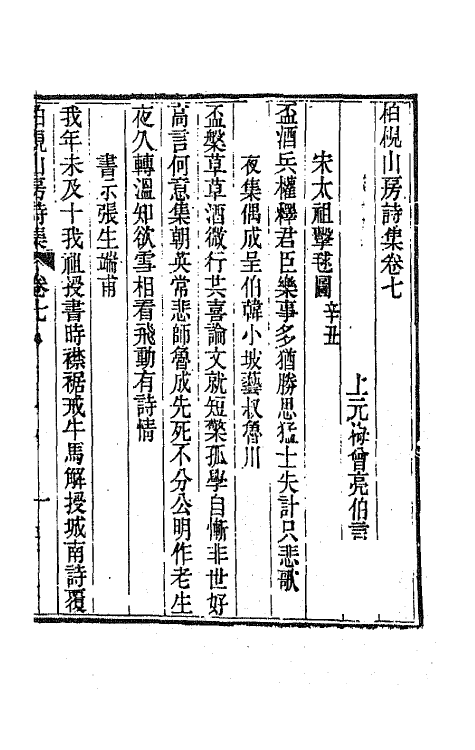 柏梘山房詩集卷七
上元梅曾亮伯言
宋太祖擊毬圖辛丑
盃酒兵權釋君臣樂事多猶勝思猛士失計只悲歌
夜集偶成呈伯韓小坡藝叔魯川
盃槃草草酒微行共喜論文就短檠孤學自慚非世好
高言何意集朝英常悲師魯成先死不分公明作老生
夜久轉溫知欲雪相看飛動有詩情
書示張生端甫
我年未及十我祖授書時襟裾戒牛馬解授城南詩覆
柏梘山房詩集 卷七 一